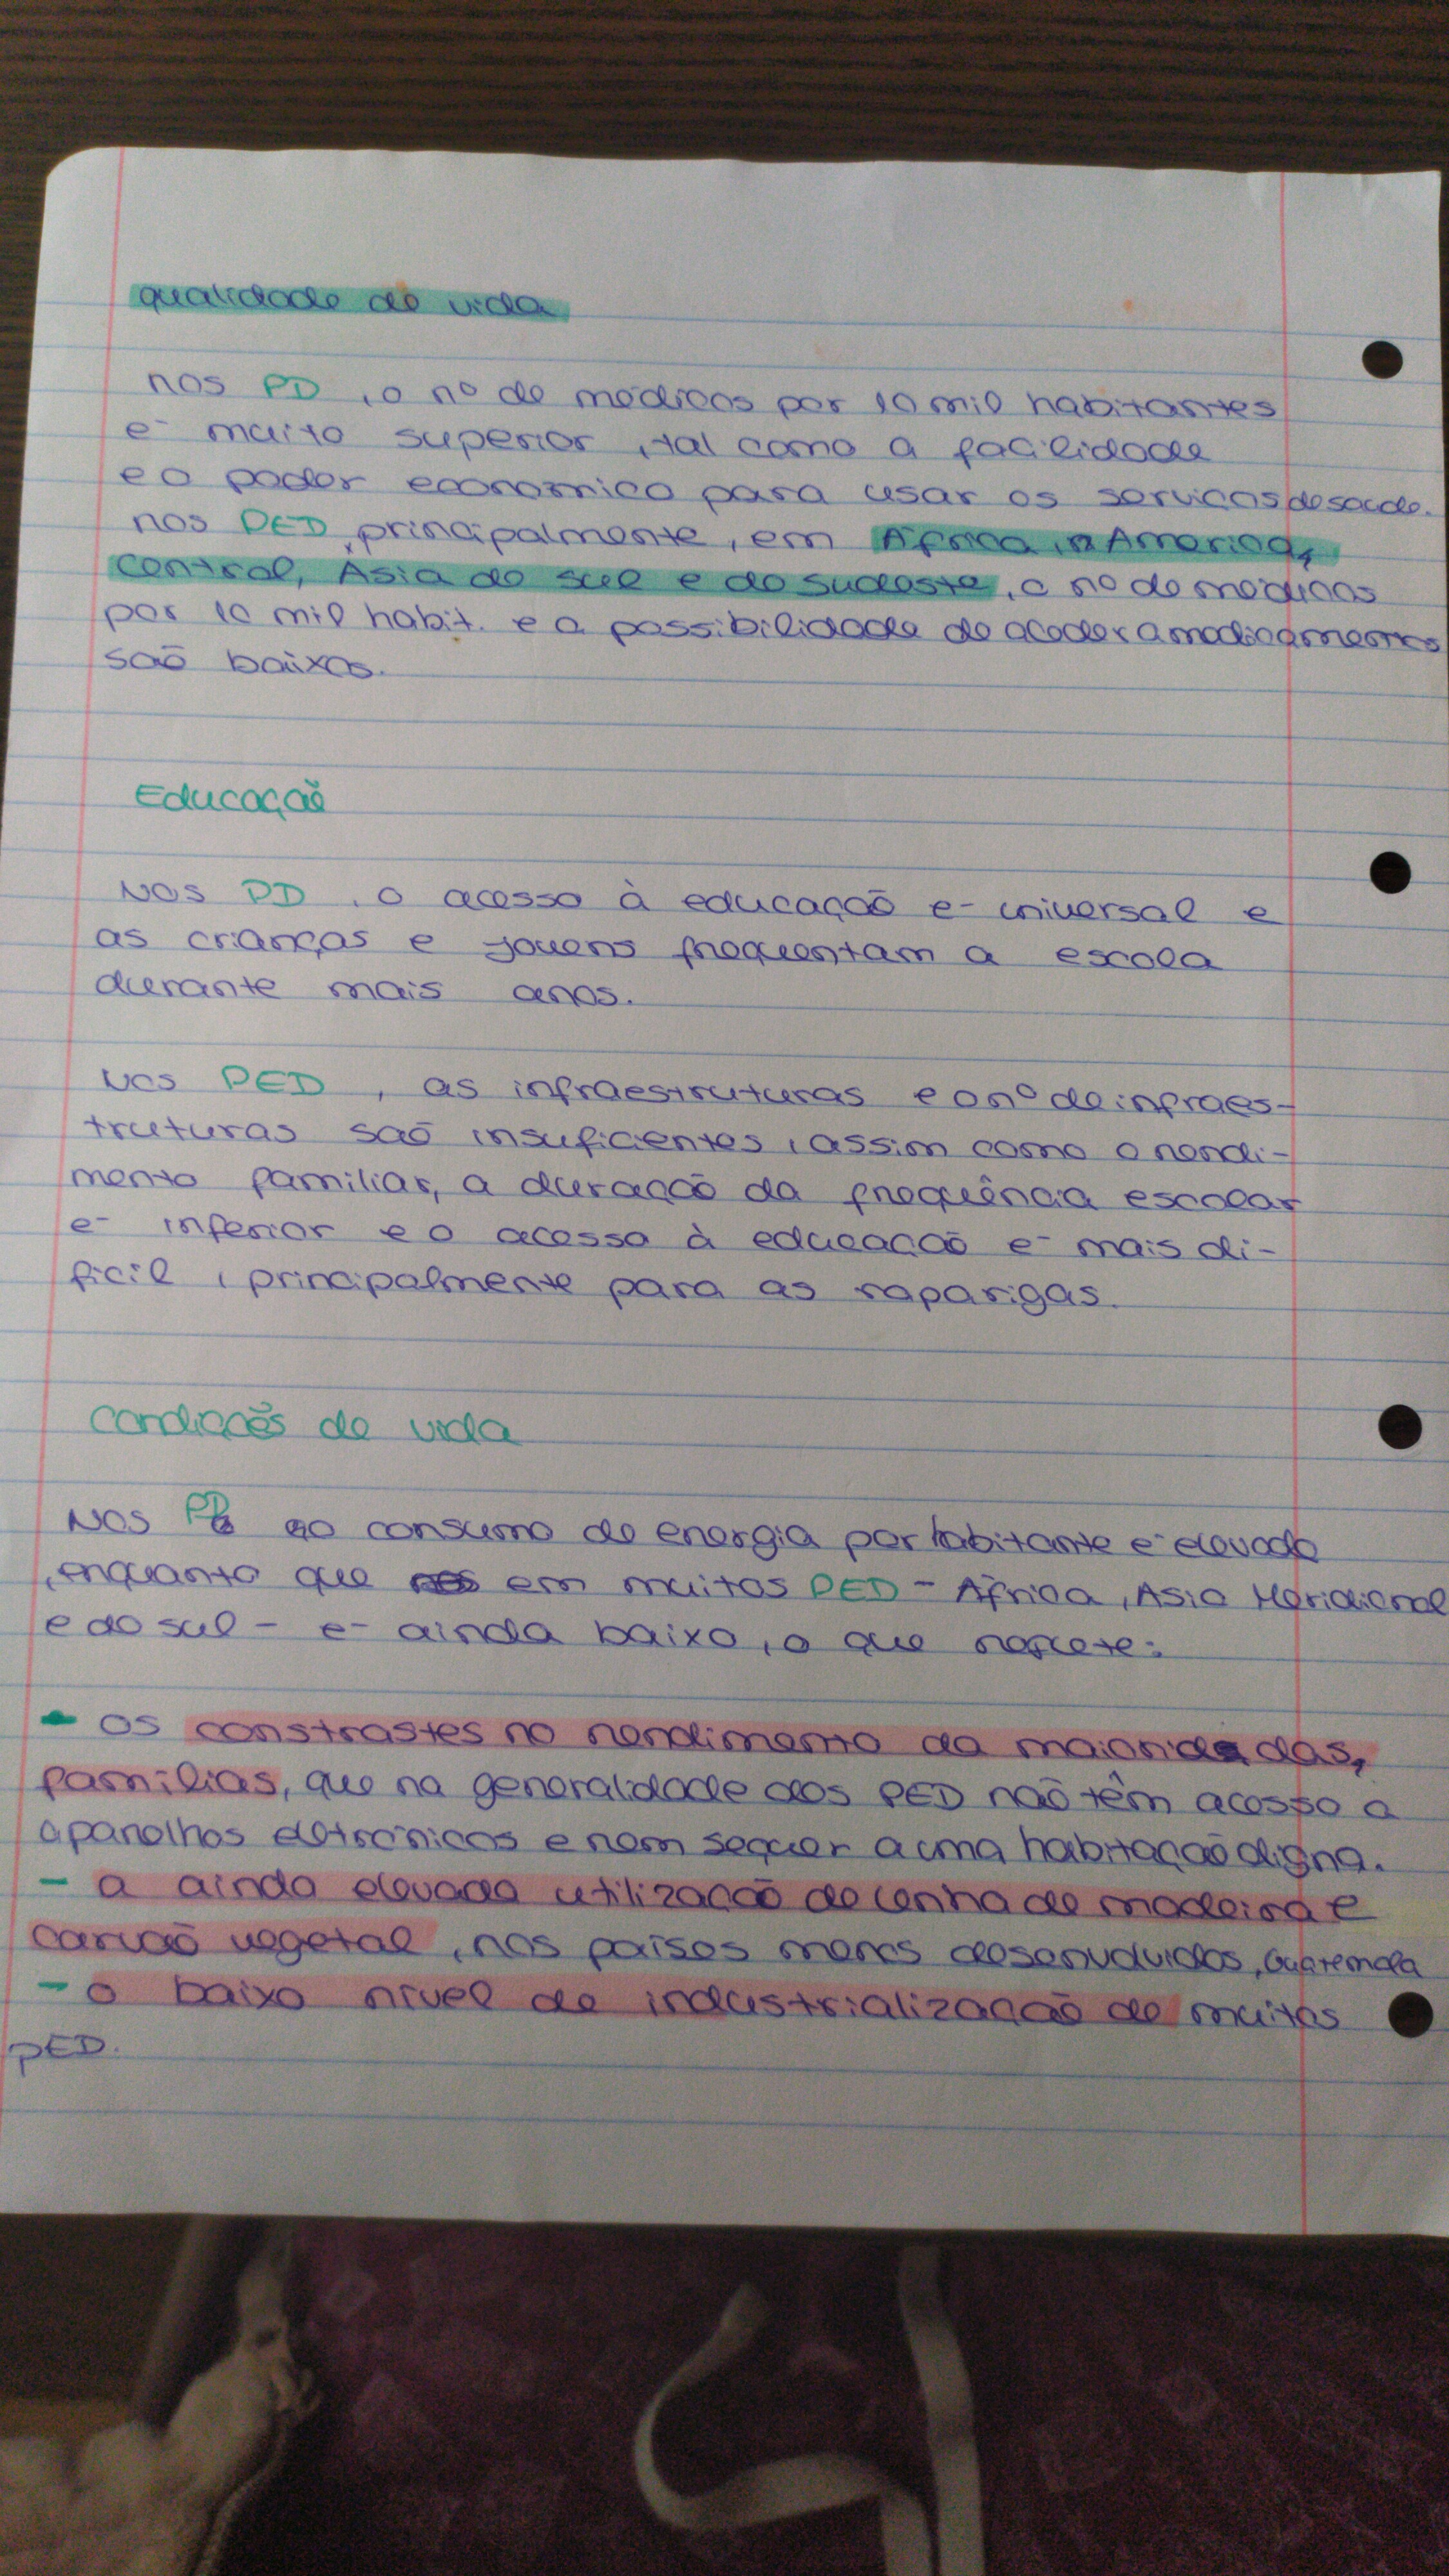 qualidade de vida
nos PD, o nº de médicos por 10 mil habitantes
é muito superior, tal como a facilidade
e o poder economico para usar os serviços de saúde.
nos PED, principalmente, em África, America,
Central, Asia do sul e do sudeste, o nº de médicos
por 10 mil habit. e a possibilidade de aceder a medicamentos
são baixos.
Educação
Nos PD, o acesso à educação é universal e
as crianças e jovens frequentam a escola
durante mais anos.
Nos PED, as infraestruturas e o nº de infraes-
truturas são insuficientes, assim como o rendi-
mento familiar, a duração da frequência escolar
é inferior e o acesso à educação é mais di-
ficil, principalmente para as raparigas.
Condições de vida
Nos PD o consumo de energia por habitante é elevado
, enquanto que em muitos PED - África, Asia Meridional
e do sul - é ainda baixo, o que reflete:
- os constrastes no rendimento da maioria das,
familias, que na generalidade dos PED não têm acesso a
aparelhos eletrónicos e nem sequer a uma habitação digna.
- a ainda elevada utilização de lenha de madeira e
carvão vegetal, nos países menos desenvolvidos, Guatemala
- o baixo nível de industrialização de muitos
PED.